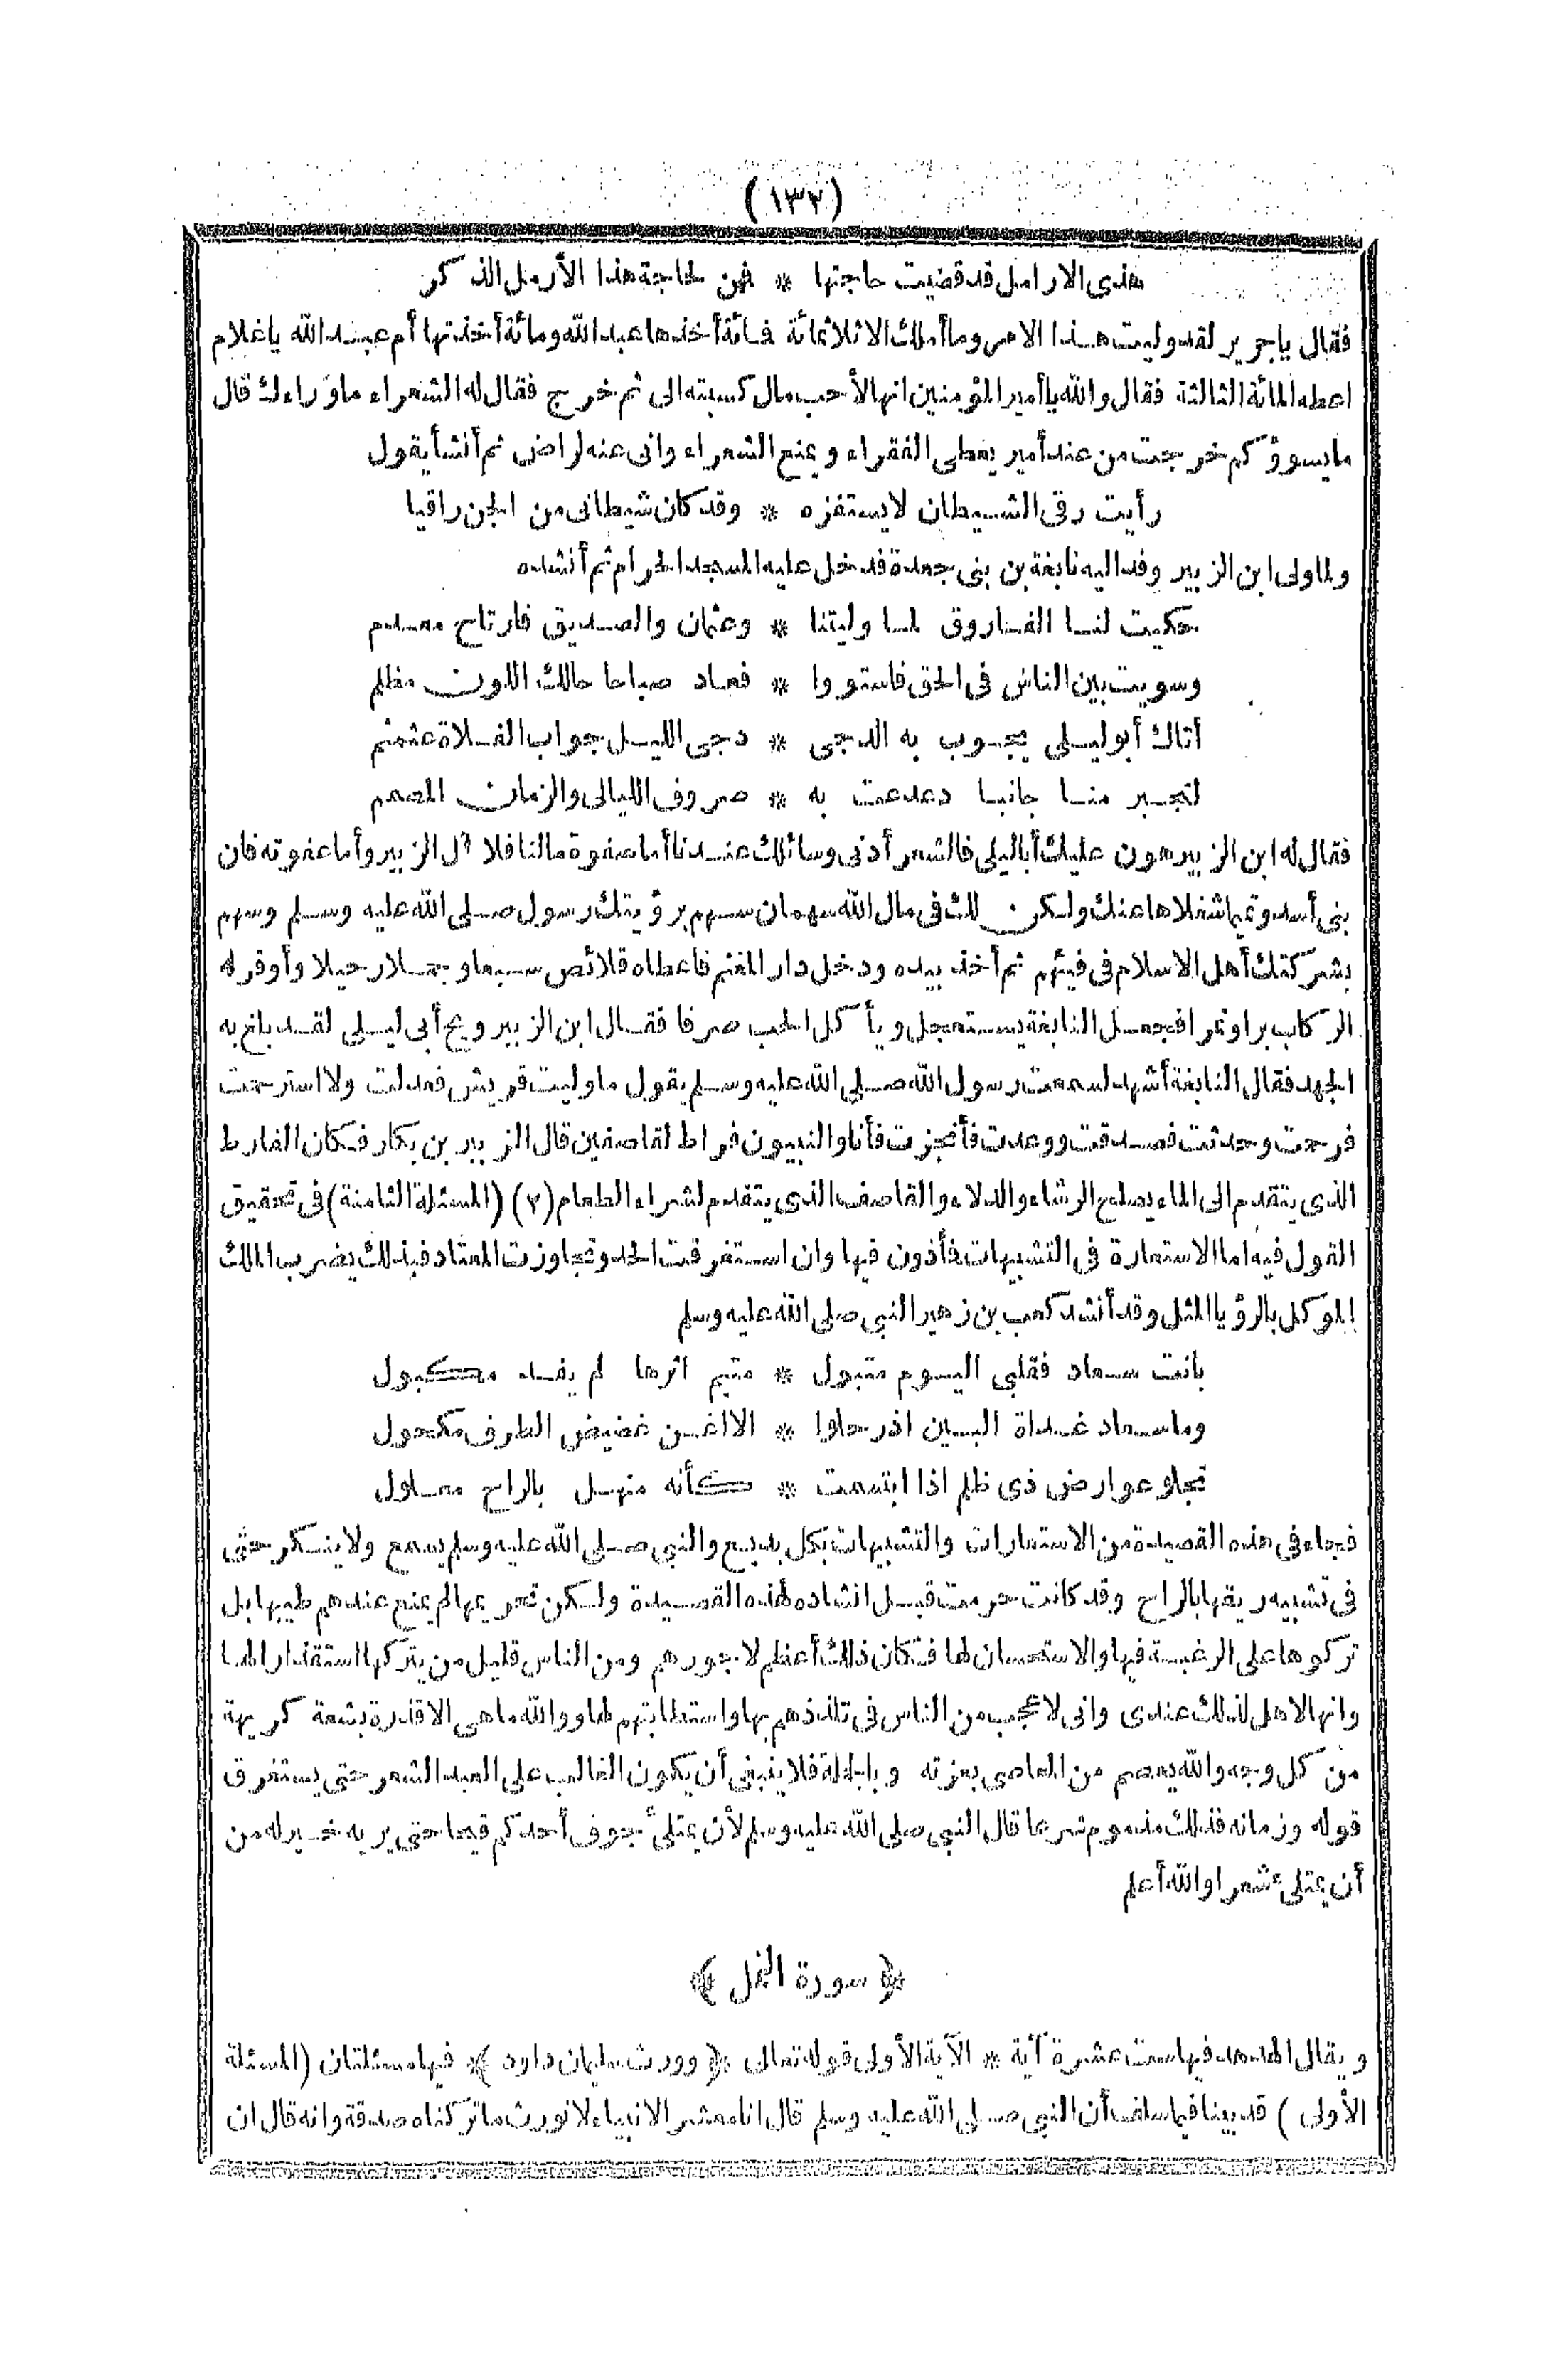 (١٣٢)
هذى الارامل قد قضيت حاجتها * فمن لحاجة هذا الأرمل الذكر
فقال ياجرير لقد وليت هذا الامر وما أملك الا ثلاثمائة فمائة أخذها عبد الله ومائة أخذتها أم عبد الله ياغلام
اعطه المائة الثالثة فقال والله ياأمير المؤمنين انها لأحب مال كسبته الى ثم خرج فقال له الشعراء ماوراءك قال
مايسوؤكم خرجت من عند أمير يعطى الفقراء ويمنع الشعراء وانى عنه لراض ثم أنشأ يقول
رأيت رقى الشيطان لايستفزه * وقد كان شيطانى من الجن راقيا
ولما ولى ابن الزبير وفد اليه نابغة بن بنى جعدة فدخل عليه المسجد الحرام ثم أنشده
حكيت لنا الفاروق لما وليتنا * وعثمان والصديق فارتاح معدم
وسويت بين الناس فى الحق فاستووا * فعاد صباحا حالك اللون مظلم
أتاك أبو ليلى يجوب به الدجى * دجى الليل جواب الفلاة عثمثم
لتجبر منا جانبا دعدعت به * صروف الليالى والزمان المصمم
فقال له ابن الزبير هون عليك أبا ليلى فالشعر أدنى وسائلك عندنا أما صفوة مالنا فلآل الزبير وأما عفوته فان
بنى أسد وتيما شغلاها عنك ولكن لك فى مال الله سهمان سهم برؤيتك رسول صلى الله عليه وسلم وسهم
بشركتك أهل الاسلام فى فيئهم ثم أخذ بيده ودخل دار المغنم فاعطاه قلائص سبعا وجملا رحيلا وأوقر له
الركاب برا وتمرا فجعل النابغة يستعجل ويأكل الحب صرفا فقال ابن الزبير ويح أبى ليلى لقد بلغ به
الجهد فقال النابغة أشهد لسمعت رسول الله صلى الله عليه وسلم يقول ما وليت قريش فعدلت ولا استرحمت
فرحمت وحدثت فصدقت ووعدت فأنجزت فأنا والنبيون فراط لقاصفين قال الزبير بن بكار فكان الفارط
الذى يتقدم الى الماء يصلح الرشاء والدلاء والقاصف الذى يتقدم لشراء الطعام (٢) (المسئلة الثامنة) فى تحقيق
القول فيه اما الاستعارة فى التشبيهات فأذون فيها وان استغرقت الحد وتجاوزت المعتاد فبذلك يضرب الملك
الموكل بالرؤيا المثل وقد أنشد كعب بن زهير النبى صلى الله عليه وسلم
بانت سعاد فقلبى اليوم متبول * متيم اثرها لم يفد مكبول
وما سعاد غداة البين اذ رحلوا * الا اغن غضيض الطرف مكحول
تجلو عوارض ذى ظلم اذا ابتسمت * كأنه منهل بالراح معلول
فجاء فى هذه القصيدة من الاستعارات والتشبيهات بكل بديع والنبى صلى الله عليه وسلم يسمع ولا ينكر حتى
فى تشبيه ريقها بالراح وقد كانت حرمت قبل انشاده لهذه القصيدة ولكن تحريمها لم يمنع عندهم طيبها بل
تركوها على الرغبة فيها والاستحسان لها فكان ذلك أعظم لاجورهم ومن الناس قليل من يتركها استقذارا لها
وانها لاهل لذلك عندى وانى لاعجب من الناس فى تلذذهم بها واستطابتهم لها ووالله ما هى الا قذرة بشعة كريهة
من كل وجه والله يعصم من المعاصى بعزته وبالجملة فلا ينبغى أن يكون الغالب على العبد الشعر حتى يستغرق
قوله وزمانه فذلك مذموم شرعا قال النبى صلى الله عليه وسلم لأن يمتلئ جوف أحدكم قيحا حتى يريه خير له من
أن يمتلئ شعرا والله أعلم
﴿ سورة النمل ﴾
ويقال الهدهد فيها ست عشرة آية * الآية الأولى قوله تعالى ﴿ وورث سليمان داود ﴾ فيها مسئلتان (المسئلة
الأولى) قد بينا فيما سلف أن النبى صلى الله عليه وسلم قال انا معشر الانبياء لا نورث ما تركناه صدقة وانه قال ان